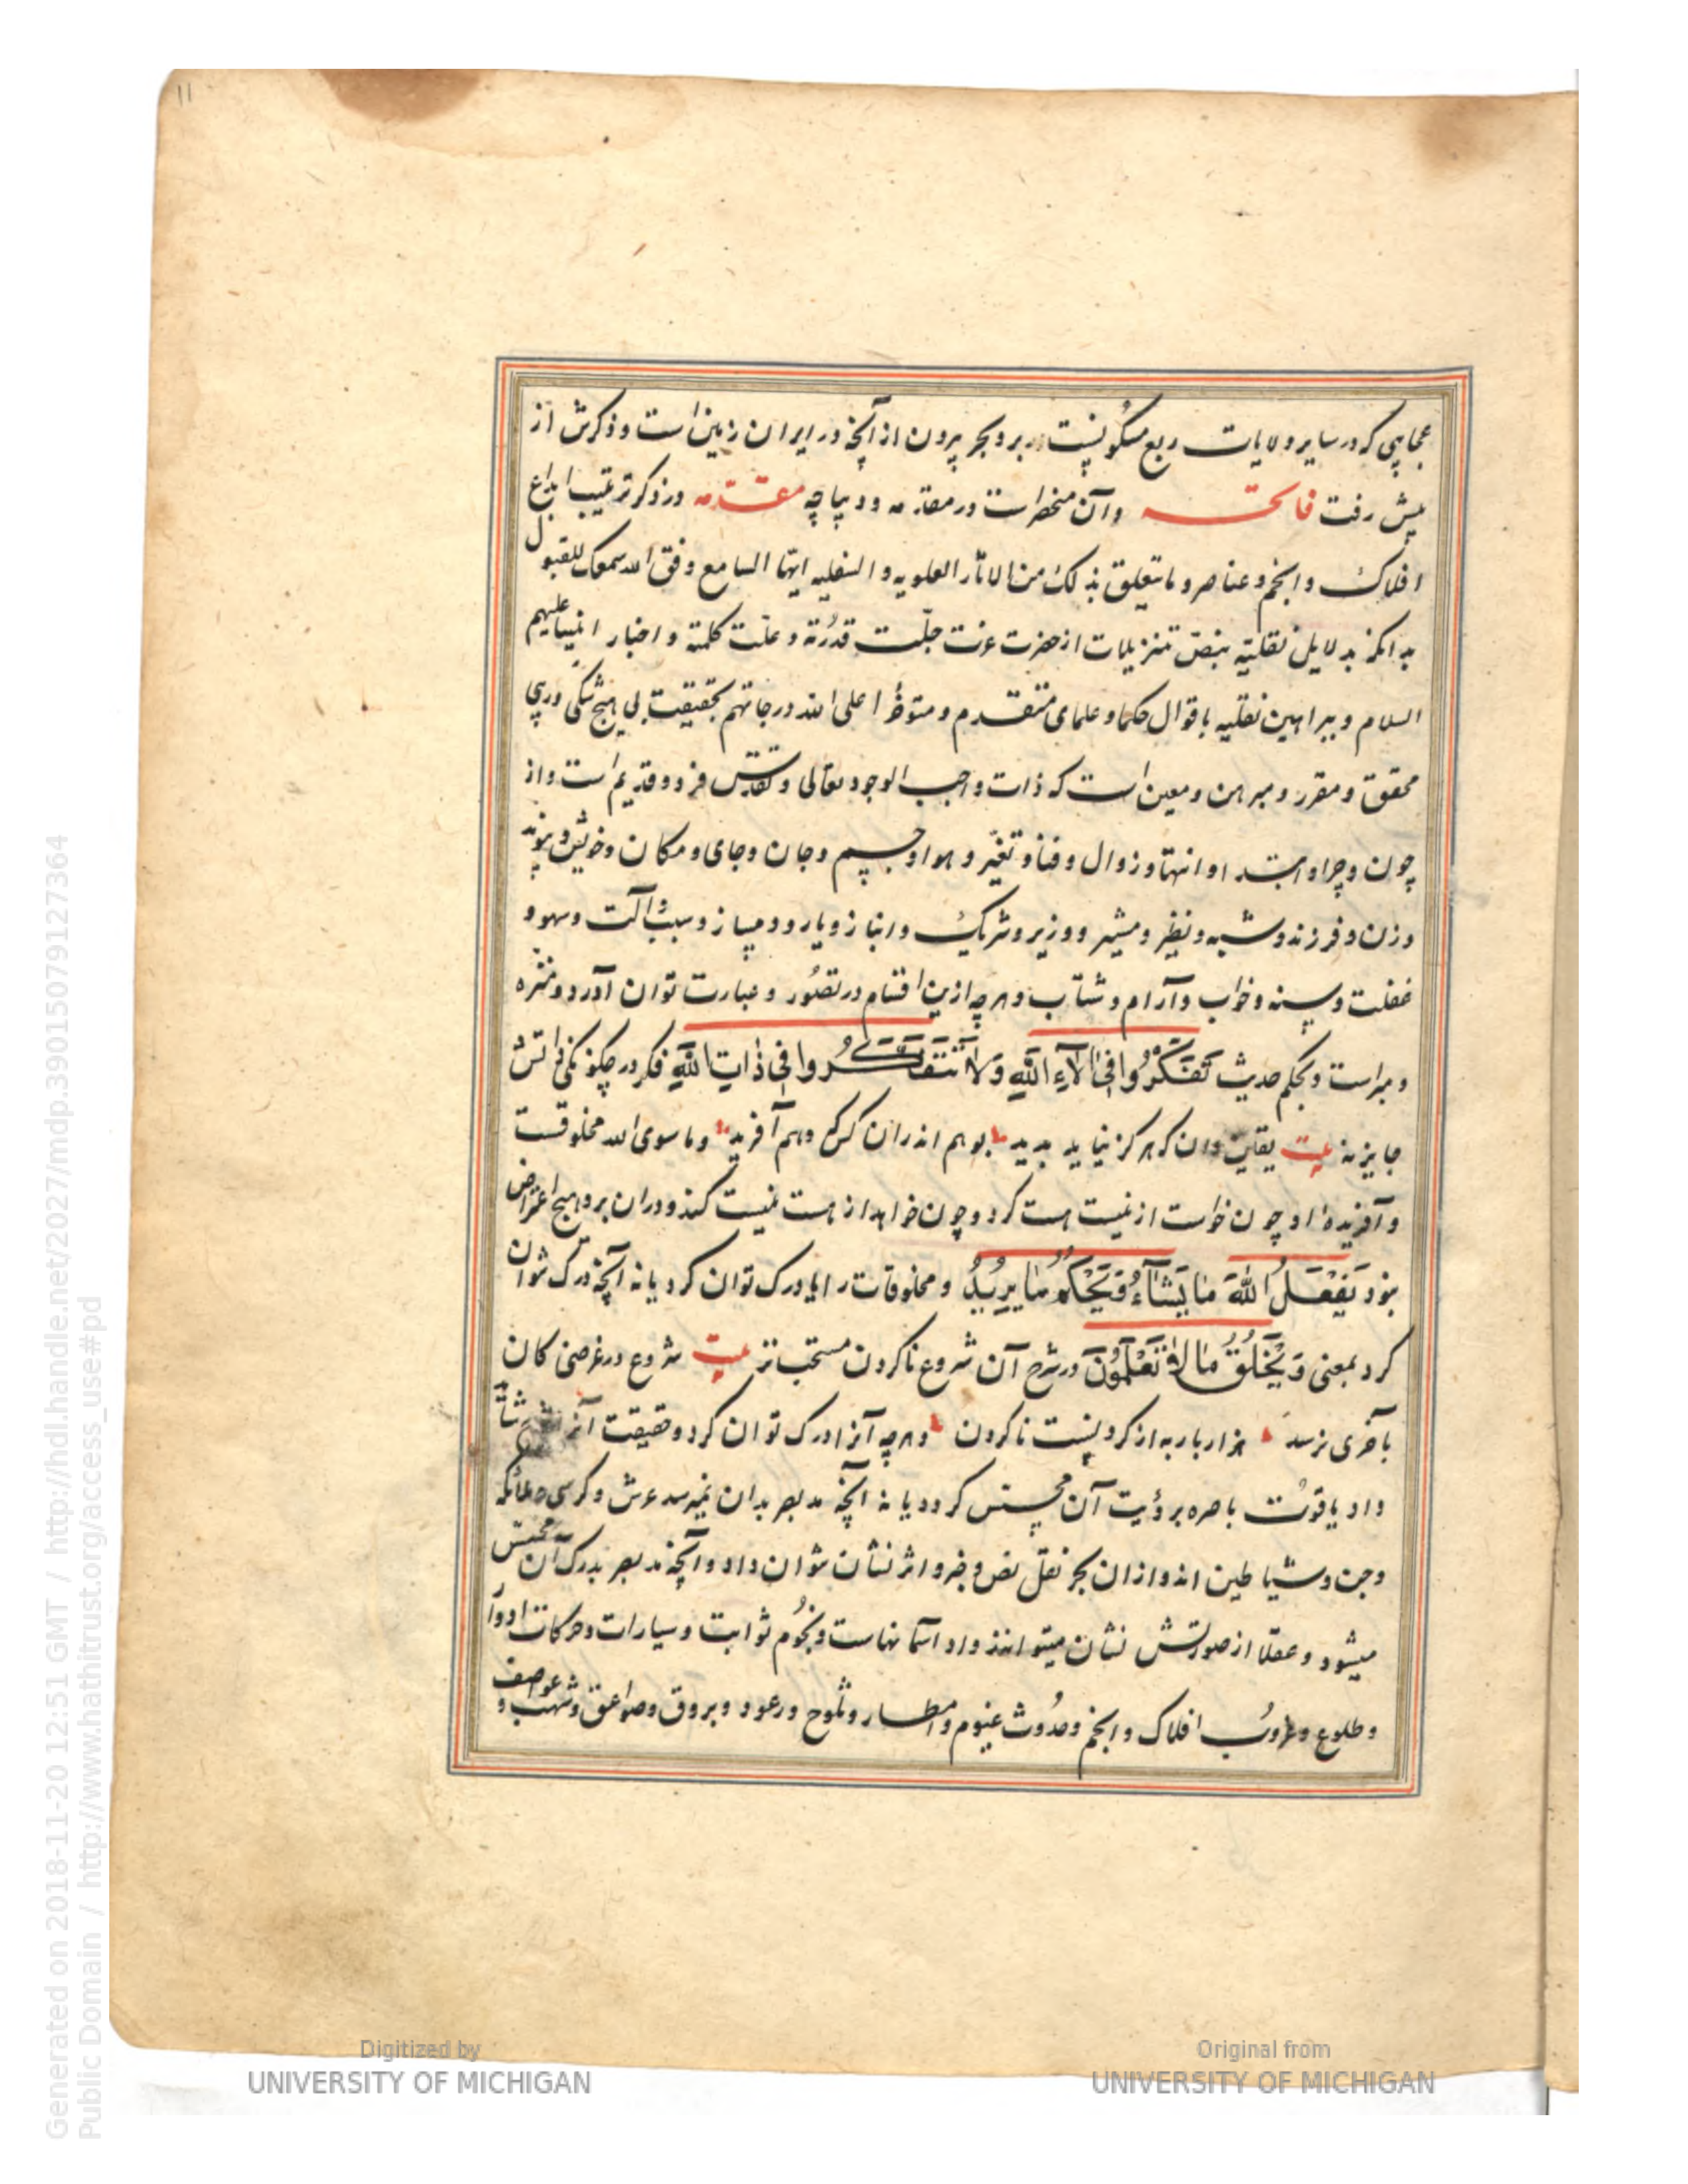 ۱۱
عجایبی که در سایر ولایات ربع مسکونیست در بر و بحر بیرون از آنچه در ایران زمین است و ذکرش از
پیش رفت فاتحه و آن منحصر است در مقدمه و دیباچه مقدمه در ذکر ترتیب ابداع
افلاک و انجم و عناصر و مایتعلق بذلک من الاثار العلویه و السفلیه ایها السامع وفق الله سمعک للقبول
بدانکه بدلایل نقلیه بنص تنزیلات از حضرت عزت جلت قدرته و علت کلمته و اخبار انبیا علیهم
السلام و ببراهین نقلیه باقوال حکما و علمای متقدم و متوخر اعلی الله درجاتهم بحقیقت بی هیچ شکی و ریبی
محقق و مقرر و مبرهن و معین است که ذات واجب الوجود تعالی و تقدس فرد و قدیم است و از
چون و چرا و ابتدا و انتها و زوال و فنا و تغیر و هوا و جسم و جان و جای و مکان و خویش و پیوند
و زن و فرزند و شبیه و نظیر و مشیر و وزیر و شریک و انباز و یار و دمساز و سبب و آلت و سهو و
غفلت و سنه و خواب و آرام و شتاب و هرچه ازین اقسام در تصور و عبارت توان آورد منزه
و مبراست و بحکم حدیث تَفَکَّرُوا فِی الآءِ اللّهِ وَلا تَتَفَکَّرُوا فِی ذاتِ اللّهِ فکر در چگونگی ذاتش
جایز نه بیت یقین دان که هرگز نیاید پدید بوهم اندران کس که وهم آفرید و ما سوی الله مخلوقست
و آفریدهٔ او چون خواست از نیست هست کرد و چون خواهد از هست نیست کند و دران برو هیچ اعتراض
نبود یَفْعَلُ اللّهَ ما یَشاءُ وَیَحْکُمُ ما یُرِیدُ و مخلوقات را یا درک توان کرد یا نه آنچه درک نتوان
کرد بمعنی وَیَخْلُقُ ما لا تَعْلَمُونَ در شرح آن شروع ناکردن مستحب تر بیت شروع در غرضی کان
بآخری نرسد هزار بار به از کرد نیست ناکردن و هرچه آنرا درک توان کرد و حقیقت آنرا شرح
داد یا قوت باصره برؤیت آن محسس گردد یا نه آنچه مد بصر بدان نمیرسد عرش و کرسی و ملائکه
و جن و شیاطین اند و ازان بجز نقل نص و خبر و اثر نشان نتوان داد و آنچه مد بصر بدرک آن محسس
میشود و عقلا از صورتش نشان میتوانند داد آسمانهاست و نجوم ثوابت و سیارات و حرکات ادوار
و طلوع و غروب افلاک و انجم و حدوث غیوم و امطار و ثلوج و رعود و بروق و صواعق و شهب و عواصف و
Generated on 2018-11-20 12:51 GMT / http://hdl.handle.net/2027/mdp.39015079127364
Public Domain / http://www.hathitrust.org/access_use#pd
Digitized by
UNIVERSITY OF MICHIGAN
Original from
UNIVERSITY OF MICHIGAN